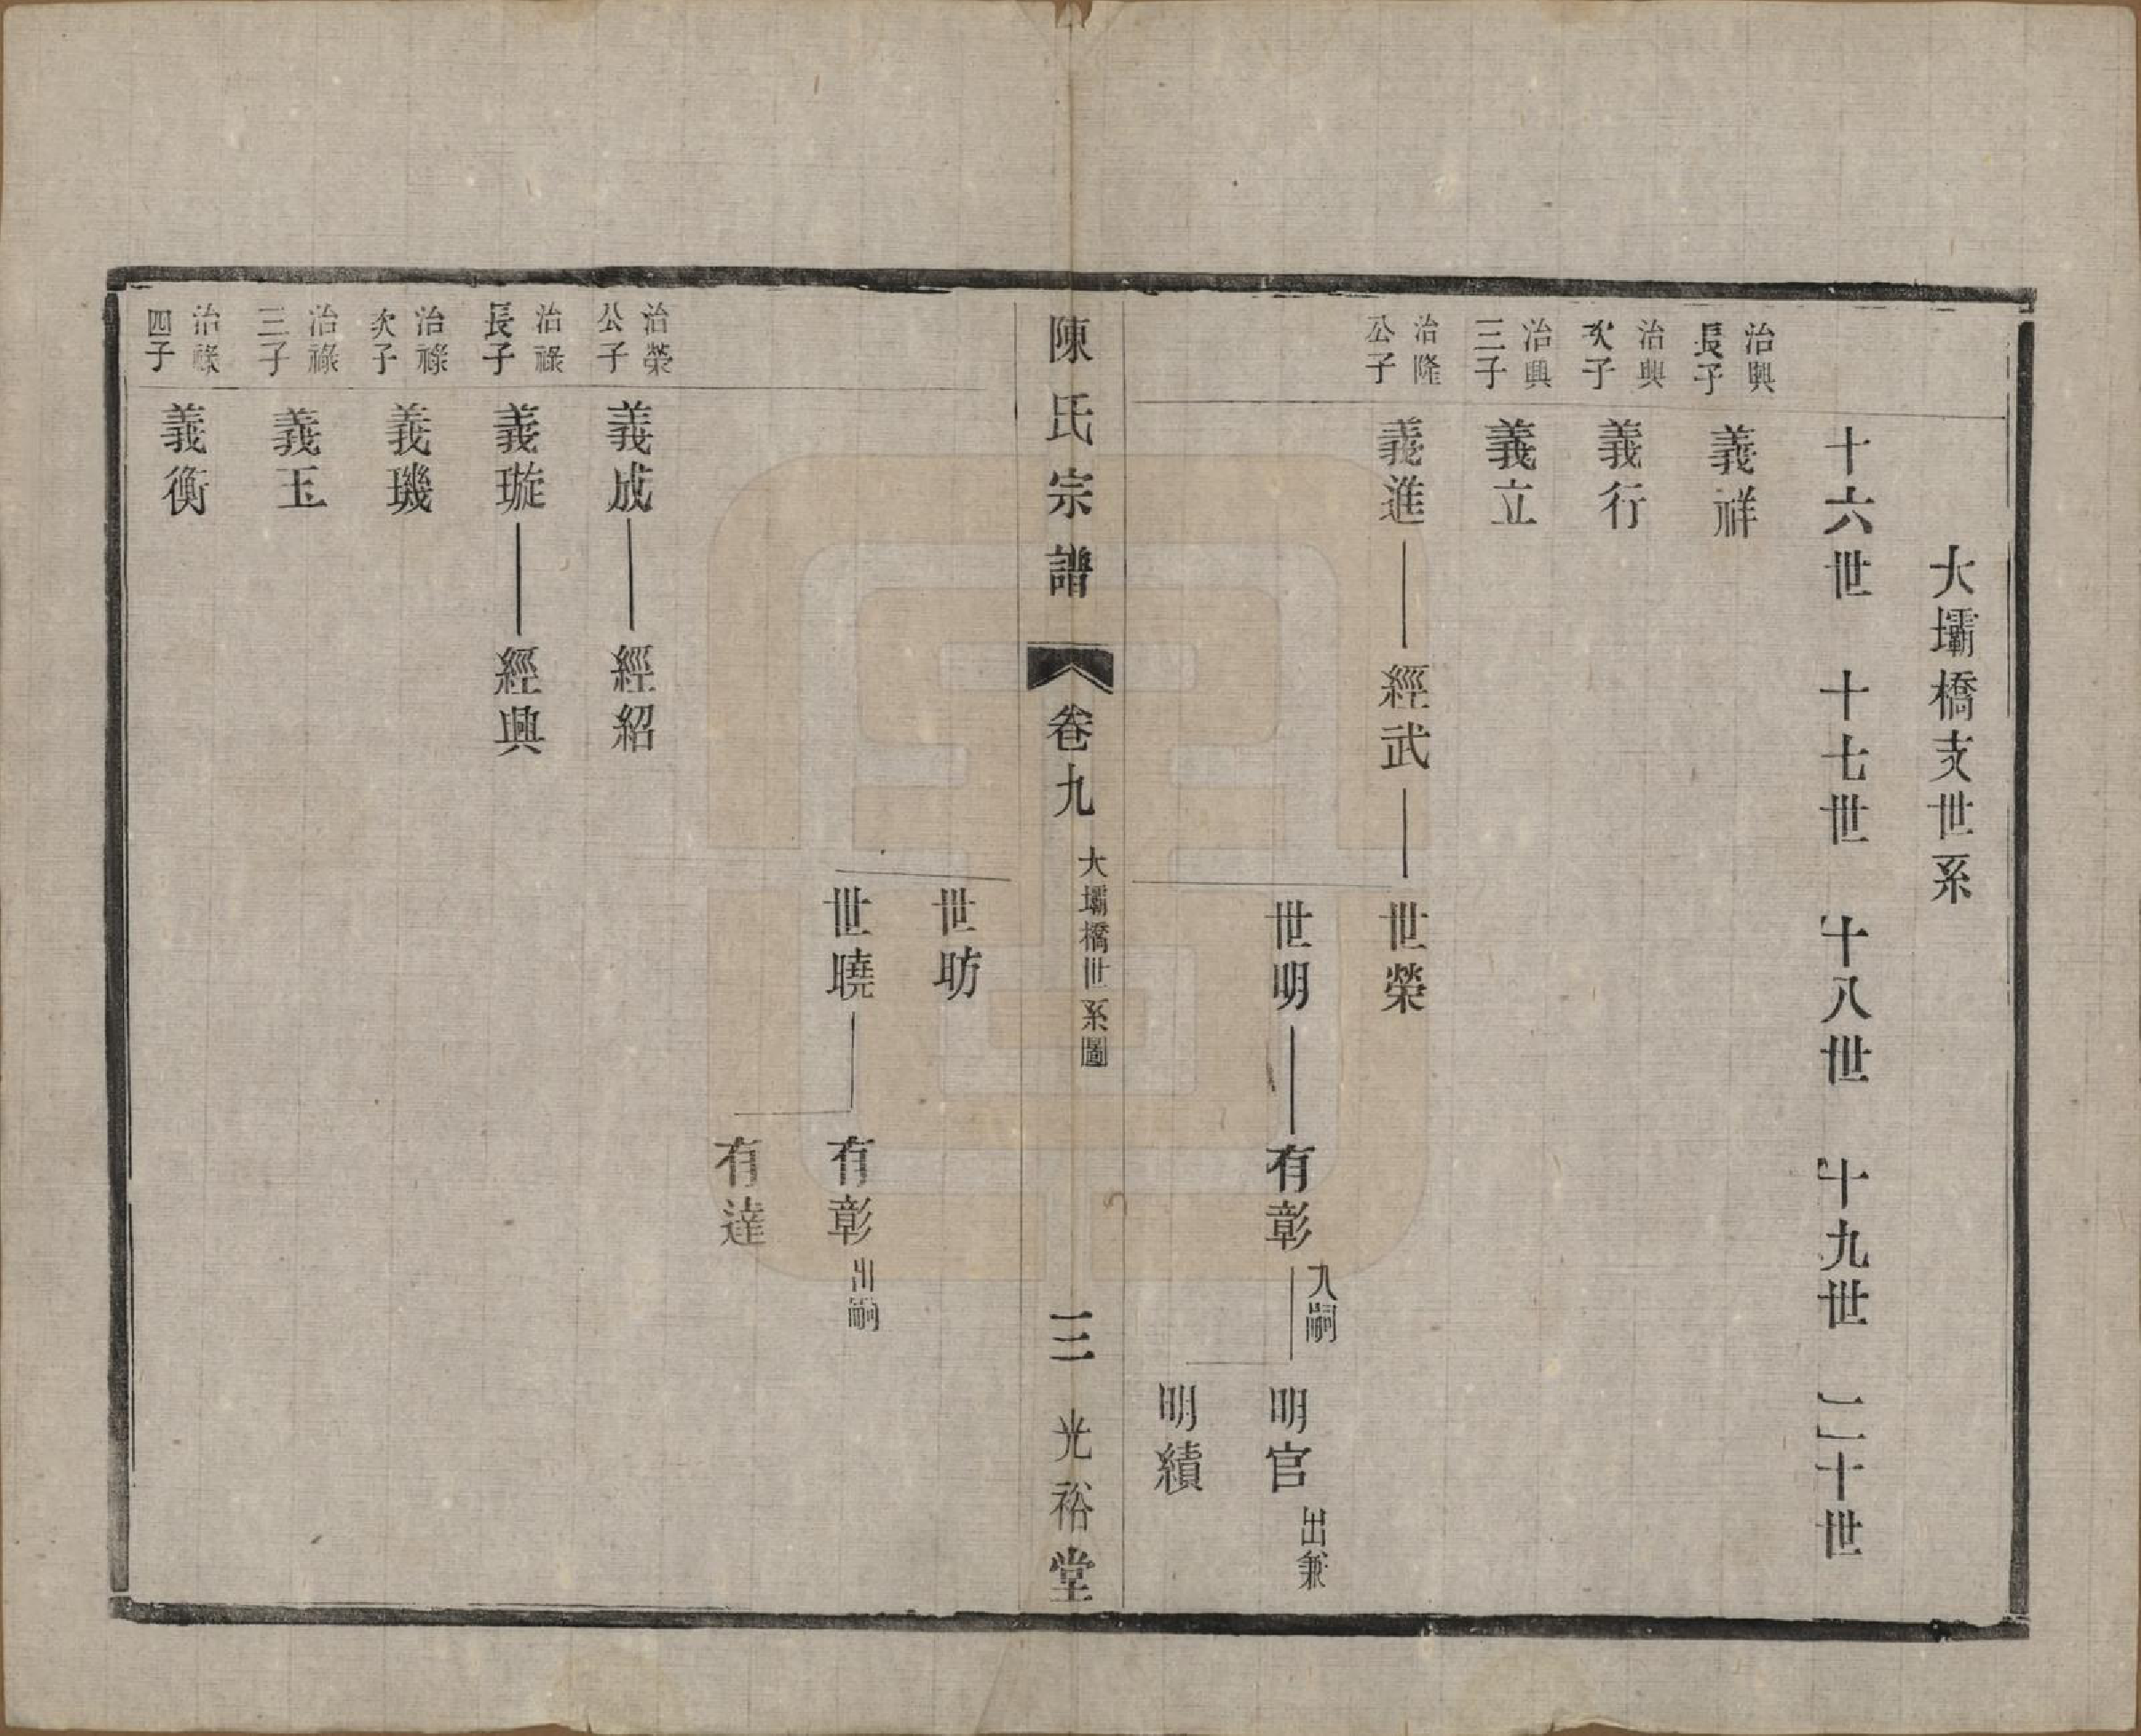 大壩橋支世系
十六世　十七世　十八世　十九世　二十世
治興長子　義祥
治興次子　義行
治興三子　義立
治隆公子　義進　經武　世榮
世明　有彰入嗣　明官出兼
明績
陳氏宗譜　卷九　大壩橋世系圖　三　光裕堂
世昉
世曉　有彰出嗣
有達
治榮公子　義成　經紹
治祿長子　義璇　經興
治祿次子　義璣
治祿三子　義玉
治祿四子　義衡